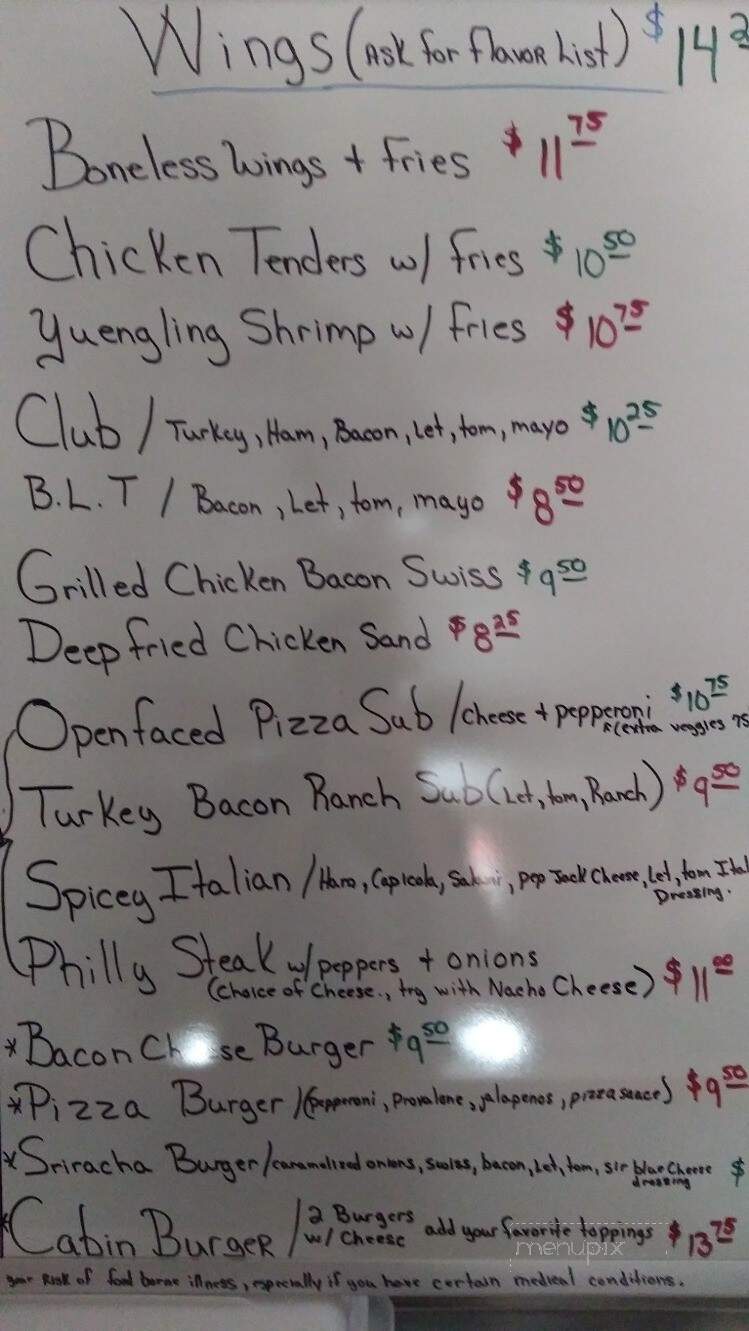 Wings (Ask for flavor List) $14
Boneless Wings + fries $11 75
Chicken Tenders w/ fries $10 50
Yuengling Shrimp w/ fries $10 75
Club / Turkey, Ham, Bacon, Let, tom, mayo $10 25
B.L.T / Bacon, Let, tom, mayo $8 50
Grilled Chicken Bacon Swiss $9 50
Deep fried Chicken Sand $8 25
Open faced Pizza Sub / cheese + pepperoni $10 75
(extra veggies 75
Turkey Bacon Ranch Sub (Let, tom, Ranch) $9 50
Spicey Italian / Ham, Capicola, Salami, pep Jack Cheese, Let, tom Ital
Dressing.
Philly Steak w/ peppers + onions
(Choice of Cheese., try with Nacho Cheese) $11 00
*Bacon Cheese Burger $9 50
*Pizza Burger / (pepperoni, Provalone, jalapenos, pizza sauce) $9 50
*Sriracha Burger / caramelized onions, swiss, bacon, Let, tom, sir blue Cheese $
dressing
*Cabin Burger / 2 Burgers w/ Cheese add your favorite toppings $13 75
menupix
your Risk of food borne illness, especially if you have certain medical conditions.